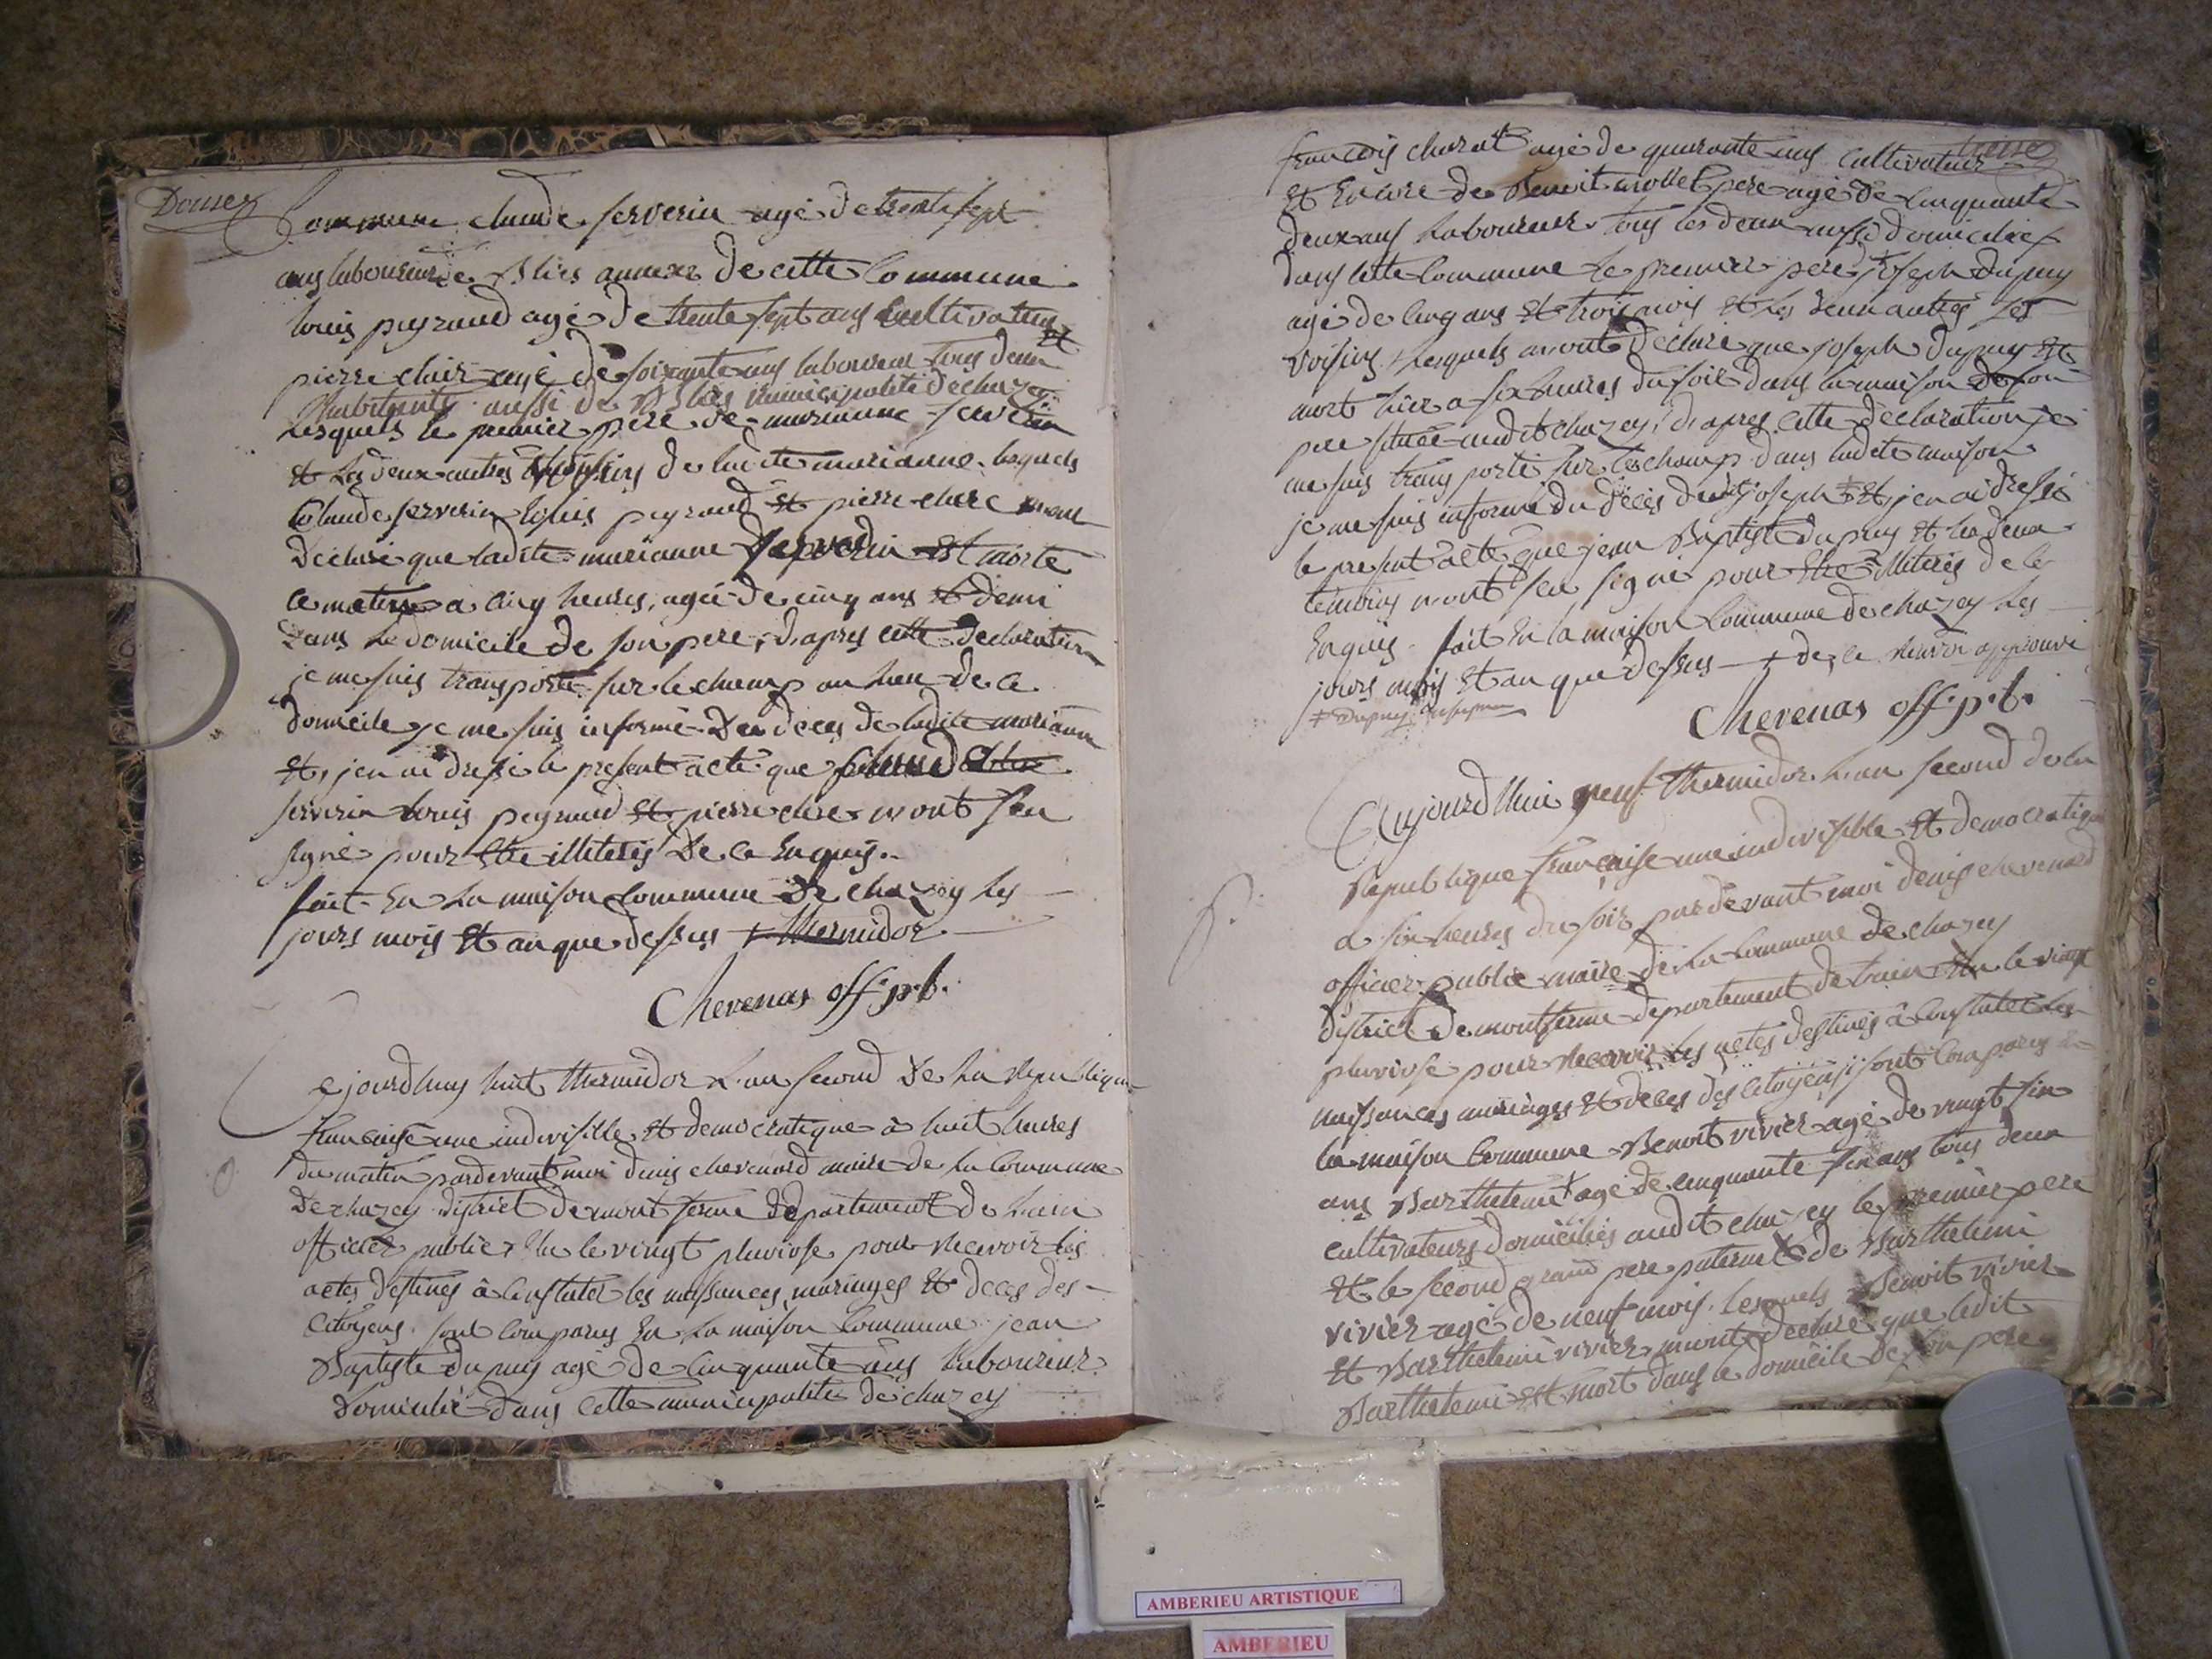 Douse
Commune claude serverin agé de trente sept
ans laboureur de Blies annexe de cette Commune
louis peyraud agé de trente sept ans Cultivateur et
pierre clair agé de soixante ans laboureur tous deux
habitants aussi de Blies municipalité de chazey
Lesquels le premier pere de marianne serverin
et Les deux autres voisins de ladite marianne. lesquels
Claude serverin louis peyraud et pierre clere mont
Declaré que ladite marianne serverin est morte
ce matin a cinq heures, agée de cinq ans et demi
dans le domicile de son pere, d'apres cette declaration
je me suis transporté sur le champ au lieu de ce
domicile je me suis informé du deces de ladite marianne
et, j'en ai dressé le present acte que claude
serverin louis peyraud et pierre clere n'ont seu
signé pour etre illiterés de ce Enquis.
fait En La maison Commune de chazey les
jours mois et an que dessus thermidor
Chevenas off. p.b.
Cejourdhuy huit thermidor L'an second De La Republique
francaise une indivisible et democratique à huit heures
du matin pardevant moi denis chevenard maire de la Commune
De chazey district de mont ferme département de Lain
officier public Elu le vingt pluviose pour Recevoir les
actes destinés à Constater les naissances, mariages et deces des
Citoyens. sont comparus En La maison Commune jean
Baptiste dupuy agé de Cinquante ans laboureur
Domicilié dans cette municipalité de chazey
treise
francois charat agé de quarante ans Cultivateur
et Encore de Benoit mollet pere agé de Cinquante
deux ans Laboureur. tous les deux aussi domiciliés
dans cette Commune le premier pere de joseph dupuy
agé de cinq ans et trois mois et les deux autres ses
voisins. lesquels m'ont declaré que joseph dupuy est
mort hier a six heures du soir dans la maison de son
pere située audit chazey, d'apres cette declaration je
me suis transporté sur le champ dans ladite maison
je me suis informé du décès dudit joseph + et j'en ai dressé
le present acte que jean Baptiste dupuy et les deux
temoins n'ont seu signé pour etre illiterés de ce
Enquis. fait En la maison Commune de chazey les
jours mois et an que dessus + de ce renvoi approuvé
+ dupuy
Chevenas off. p.b.
Aujourdhui neuf thermidor L'an second de la
Republique francaise une indivisible et democratique
a six heures du soir pardevant moi denis chevenard
officier public maire de la Commune de chazey
district de montferme departement de Lain Elu le vingt
pluviose pour Recevoir les actes destinés à Constater les
naissances mariages et deces des Citoyens; sont Comparus En
la maison Commune Benoit vivier agé de vingt six
ans Barthelemi + agé de cinquante six ans tous deux
cultivateurs domiciliés audit chazey le premier pere
et le second grand pere paternel de Barthelemi
vivier agé de neuf mois. lesquels Benoit vivier
et Barthelemi vivier m'ont declaré que ledit
Barthelemi est mort dans le domicile de son pere
AMBERIEU ARTISTIQUE
AMBERIEU